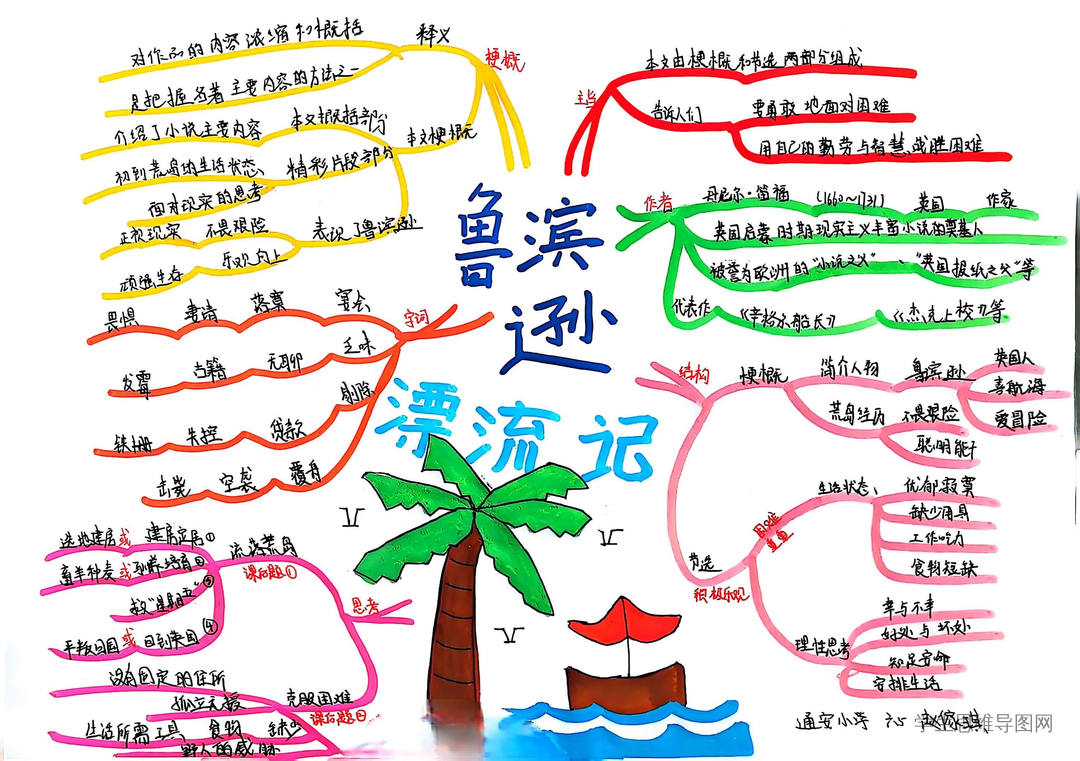 鲁滨
逊
漂流记
梗概
释义
对作品的内容浓缩和概括
是把握名著主要内容的方法之一
本文梗概
本文概括部分
介绍了小说主要内容
精彩片段部分
初到荒岛的生活状态、
面对现实的思考
表现了鲁滨逊
正视现实 不畏艰险
顽强生存 乐观向上
字词
畏惧 妻 落寞 宴会
发霉 古籍 无聊 乏味
剔除
铁栅 失控 贷款
空袭 覆舟
思考
流落荒岛
课后题①
选地建房或 建房定居①
畜羊种麦或 驯养培育②
救“星期五”③
平叛回国或 回到英国④
克服困难
课后题②
没有固定的住所
孤立无援
生活所需工具 食物 缺少
野人的威胁
主旨
本文由梗概和节选两部分组成
告诉人们
要勇敢地面对困难
用自己的勤劳与智慧战胜困难
作者
丹尼尔·笛福 (1660~1731) 英国 作家
英国启蒙时期现实主义丰富小说的奠基人
被誉为欧洲的“小说之父”、“英国报纸之父”等
代表作
《辛格尔船长》 《杰克上校》等
结构
梗概
简介人物 鲁滨逊
英国人
喜航海
爱冒险
荒岛经历 不畏艰险
聪明能干
节选
积极乐观
困难
重重
生活状态、
忧郁寂寞
缺少用具
工作吃力
食物短缺
理性思考
幸与不幸
好处与坏处
知足安命
安排生活
通安小学 六
思维导图网